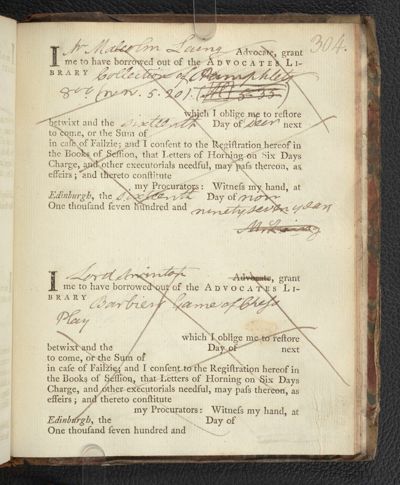 304.
I Mr Malcolm Laing Advocate, grant
me to have borrowed out of the ADVOCATES LI-
BRARY Collection of Pamphlets
8vo 5. 201.
which I oblige me to reſtore
betwixt and the sixteenth Day of next
to come, or the Sum of
in caſe of Failzie; and I conſent to the Regiſtration hereof in
the Books of Seſſion, that Letters of Horning on Six Days
Charge, and other executorials needful, may paſs thereon, as
effeirs; and thereto conſtitute
my Procurators: Witneſs my hand, at
Edinburgh, the sixteenth Day of nov
One thouſand ſeven hundred and ninety seven years
M Laing
I Lord Advocate, grant
me to have borrowed out of the ADVOCATES LI-
BRARY Barbiers Game of Chess
Play
which I oblige me to reſtore
betwixt and the Day of next
to come, or the Sum of
in caſe of Failzie; and I conſent to the Regiſtration hereof in
the Books of Seſſion, that Letters of Horning on Six Days
Charge, and other executorials needful, may paſs thereon, as
effeirs; and thereto conſtitute
my Procurators: Witneſs my hand, at
Edinburgh, the Day of
One thouſand ſeven hundred and